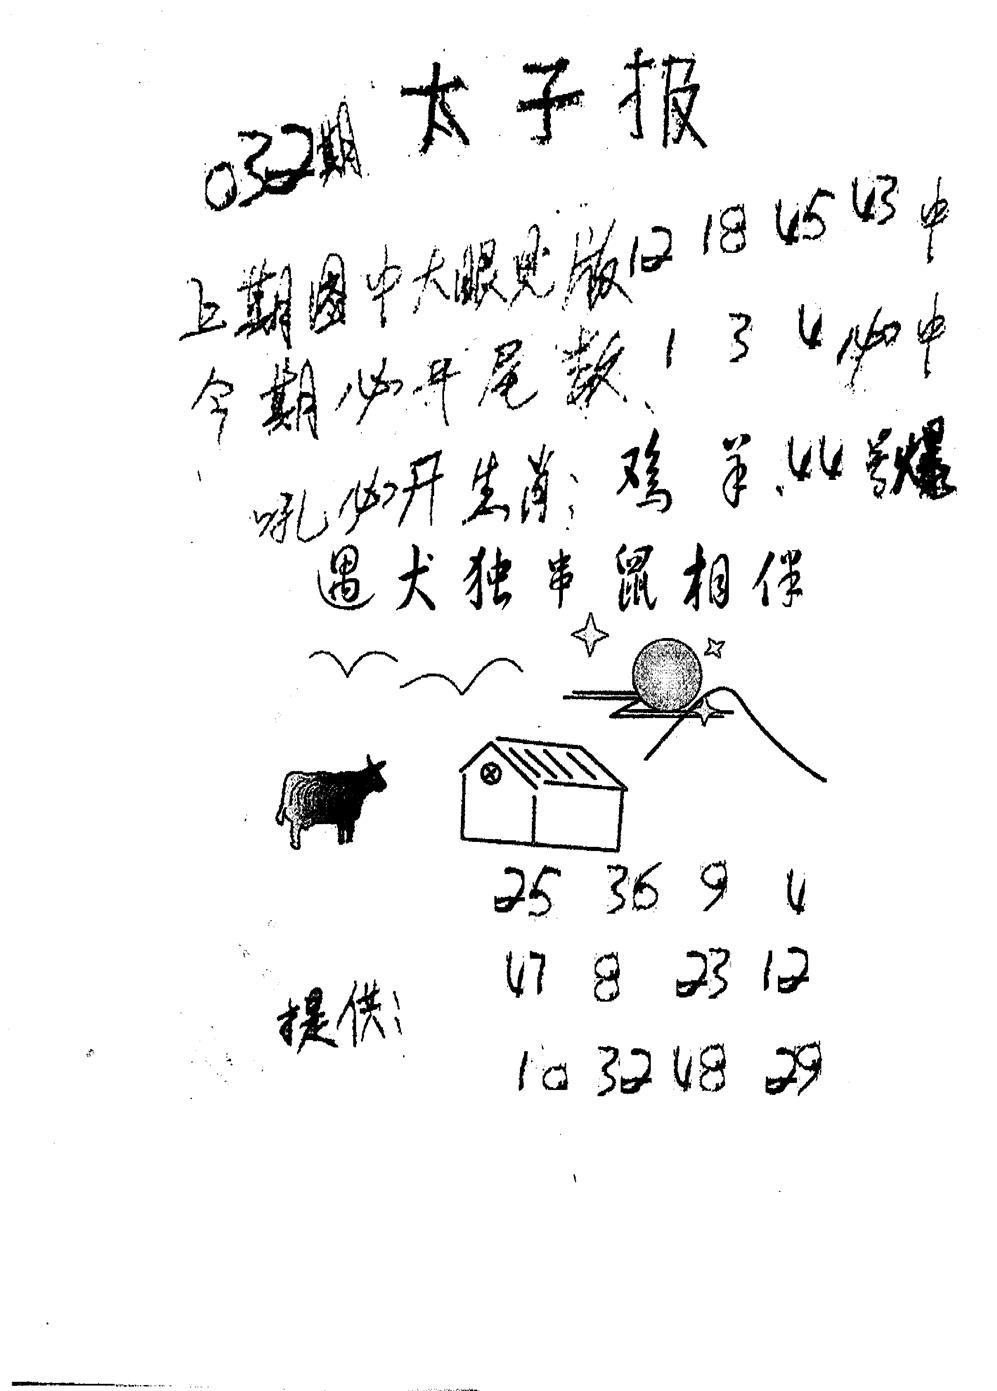 太子报
032期
上期图中大眼见版12 18 45 43中
今期必开尾数、1 3 4必中
吼必开生肖：鸡 羊.44号爆
遇犬独串鼠相伴
25 36 9 4
47 8 23 12
提供：
10 32 48 29